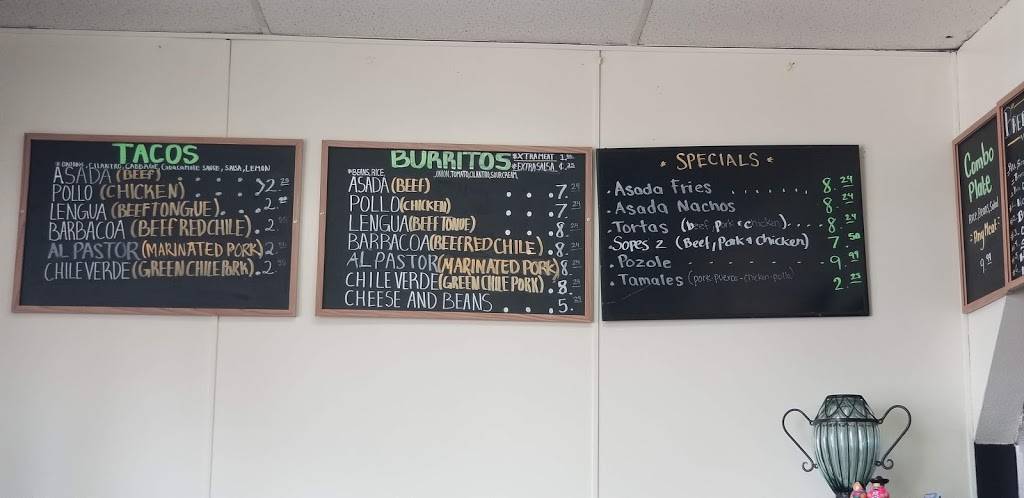 TACOS
* ONIONS, CILANTRO, CABBAGE, GUACAMOLE SAUCE, SALSA, LEMON
ASADA (BEEF)
POLLO (CHICKEN) . . . . >2.25
LENGUA (BEEF TONGUE). . 2.
BARBACOA (BEEF RED CHILE). 2.
AL PASTOR (MARINATED PORK) 2.
CHILE VERDE (GREEN CHILE PORK). 2.
BURRITOS
*XTRA MEAT 1.
*EXTRA SALSA 1.25
*BEANS, RICE, ONION, TOMATO, CILANTRO, SOUR CREAM,
ASADA (BEEF) . . . 7.24
POLLO (CHICKEN) . . . 7.24
LENGUA (BEEF TONUE) . . . 8.24
BARRACOA (BEEF RED CHILE) . 8.24
AL PASTOR (MARINATED PORK) 8.24
CHILE VERDE (GREEN CHILE PORK) . 8.24
CHEESE AND BEANS . . . 5.25
* SPECIALS *
. Asada Fries . . . . . . . 8.24
. Asada Nachos 8.24
. Tortas (beef, Pork & chicken) . . . 8.24
. Sopes 2 (Beef, Pork & chicken) 7.50
. Pozole - - - - - - 9.99
. Tamales (pork-puerco-chicken-pollo) 2.25
Combo
Plate
Rice, Beans, Salad
- Any Meat -
9.99